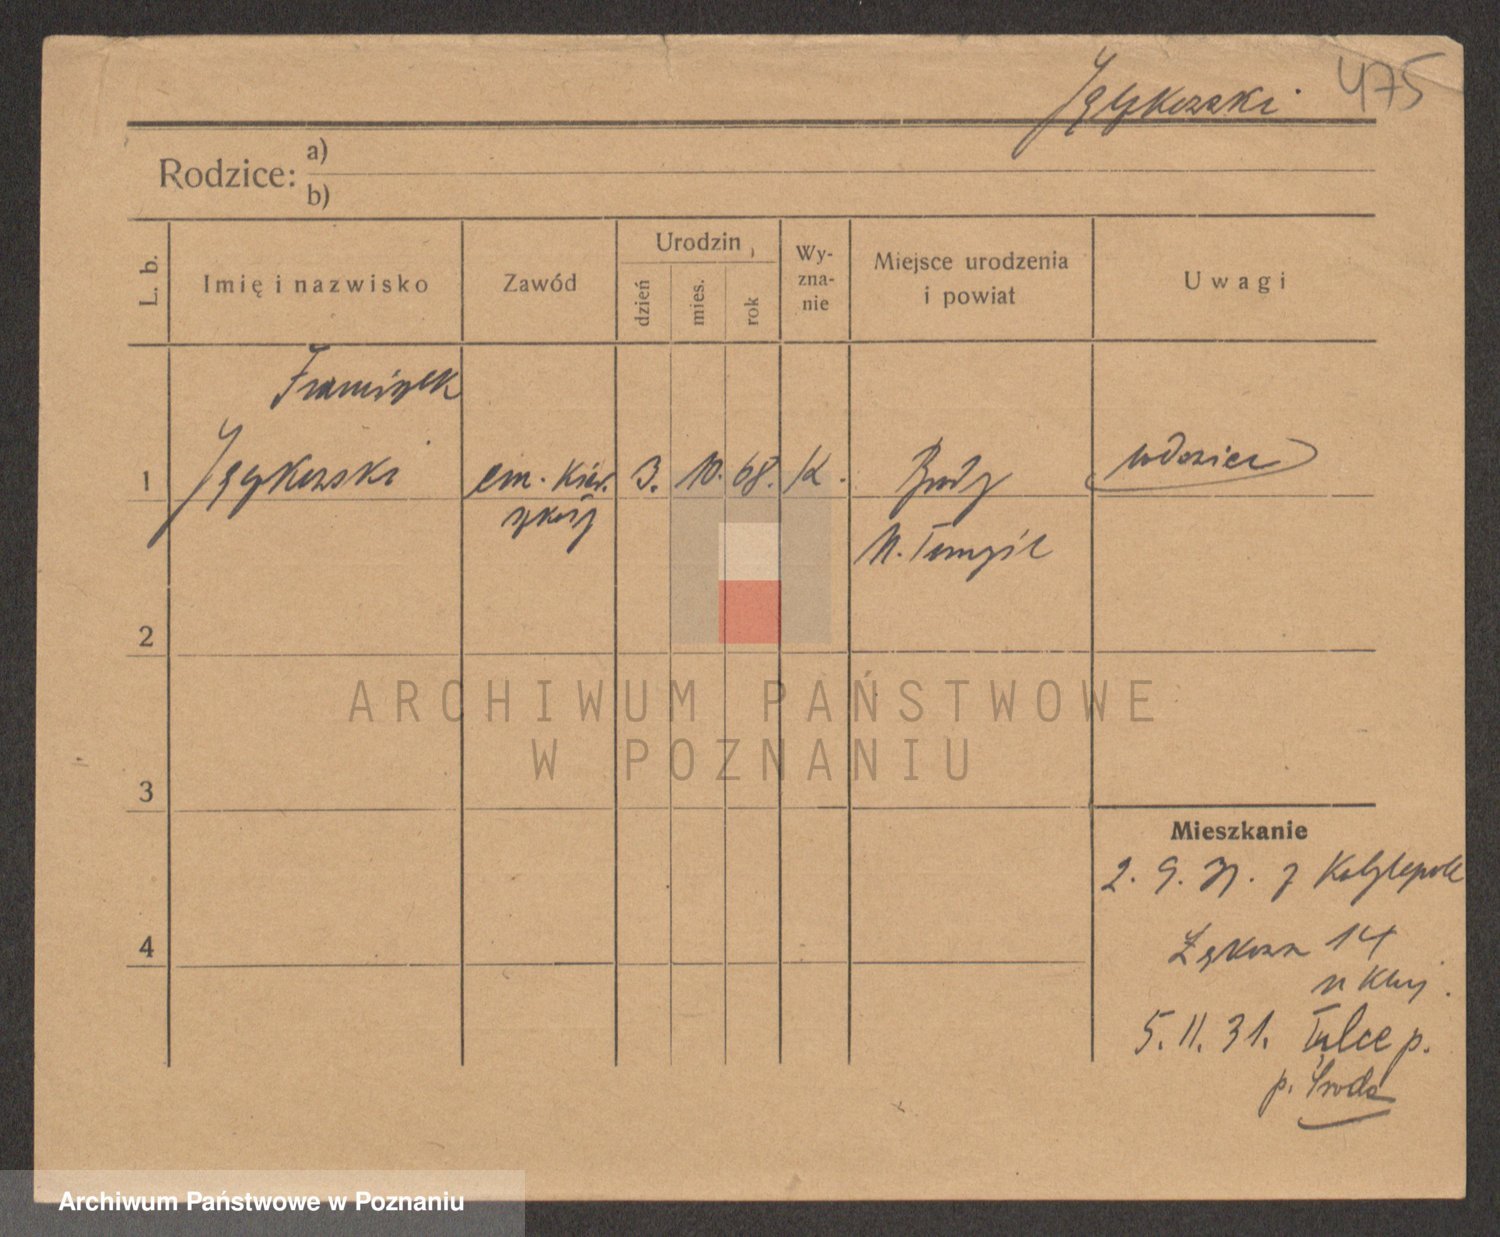 475
Rodzice: a)
b)
L. b.
Imię i nazwisko
Zawód
Urodzin
dzień
mies.
rok
Wy-
zna-
nie
Miejsce urodzenia
i powiat
Uwagi
Franciszek
1
em. kier.
3. 10. 68. k.
Brody
wdowiec
szkoły
N. Tomyśl
2
ARCHIWUM PAŃSTWOWE
W POZNANIU
3
Mieszkanie
2. 9. 31. z
4
14
5. 11. 31. Tulce p.
p. Środa
Archiwum Państwowe w Poznaniu